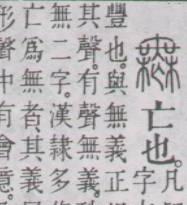 亡也。凡
字
豐也。與無義正
其聲。有聲無義。
無二字。漢隸多
亡爲無者、其義
形聲中有會意。